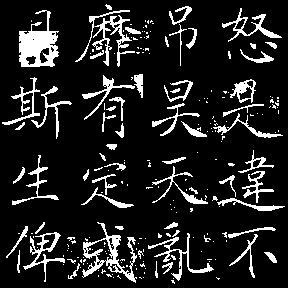 怒是違不
吊昊天亂
靡有定式
月斯生俾